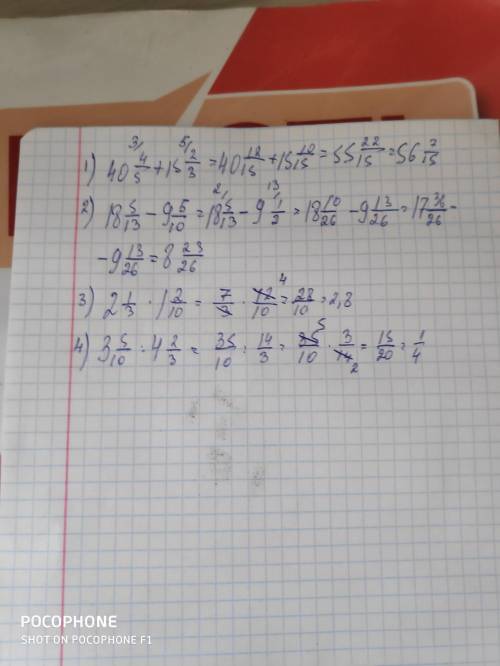 1) 40 4/5 + 15 2/3 = 40 12/15 + 15 10/15 = 55 22/15 = 56 7/15
2) 18 5/13 - 9 5/10 = 18 5/13 - 9 1/2 = 18 10/26 - 9 13/26 = 17 36/26 -
- 9 13/26 = 8 23/26
3) 2 1/3 · 1 2/10 = 7/3 · 12/10 = 28/10 = 2,8
4) 3 5/10 : 4 2/3 = 35/10 : 14/3 = 35/10 · 3/14 = 15/20 = 1/4
POCOPHONE
SHOT ON POCOPHONE F1